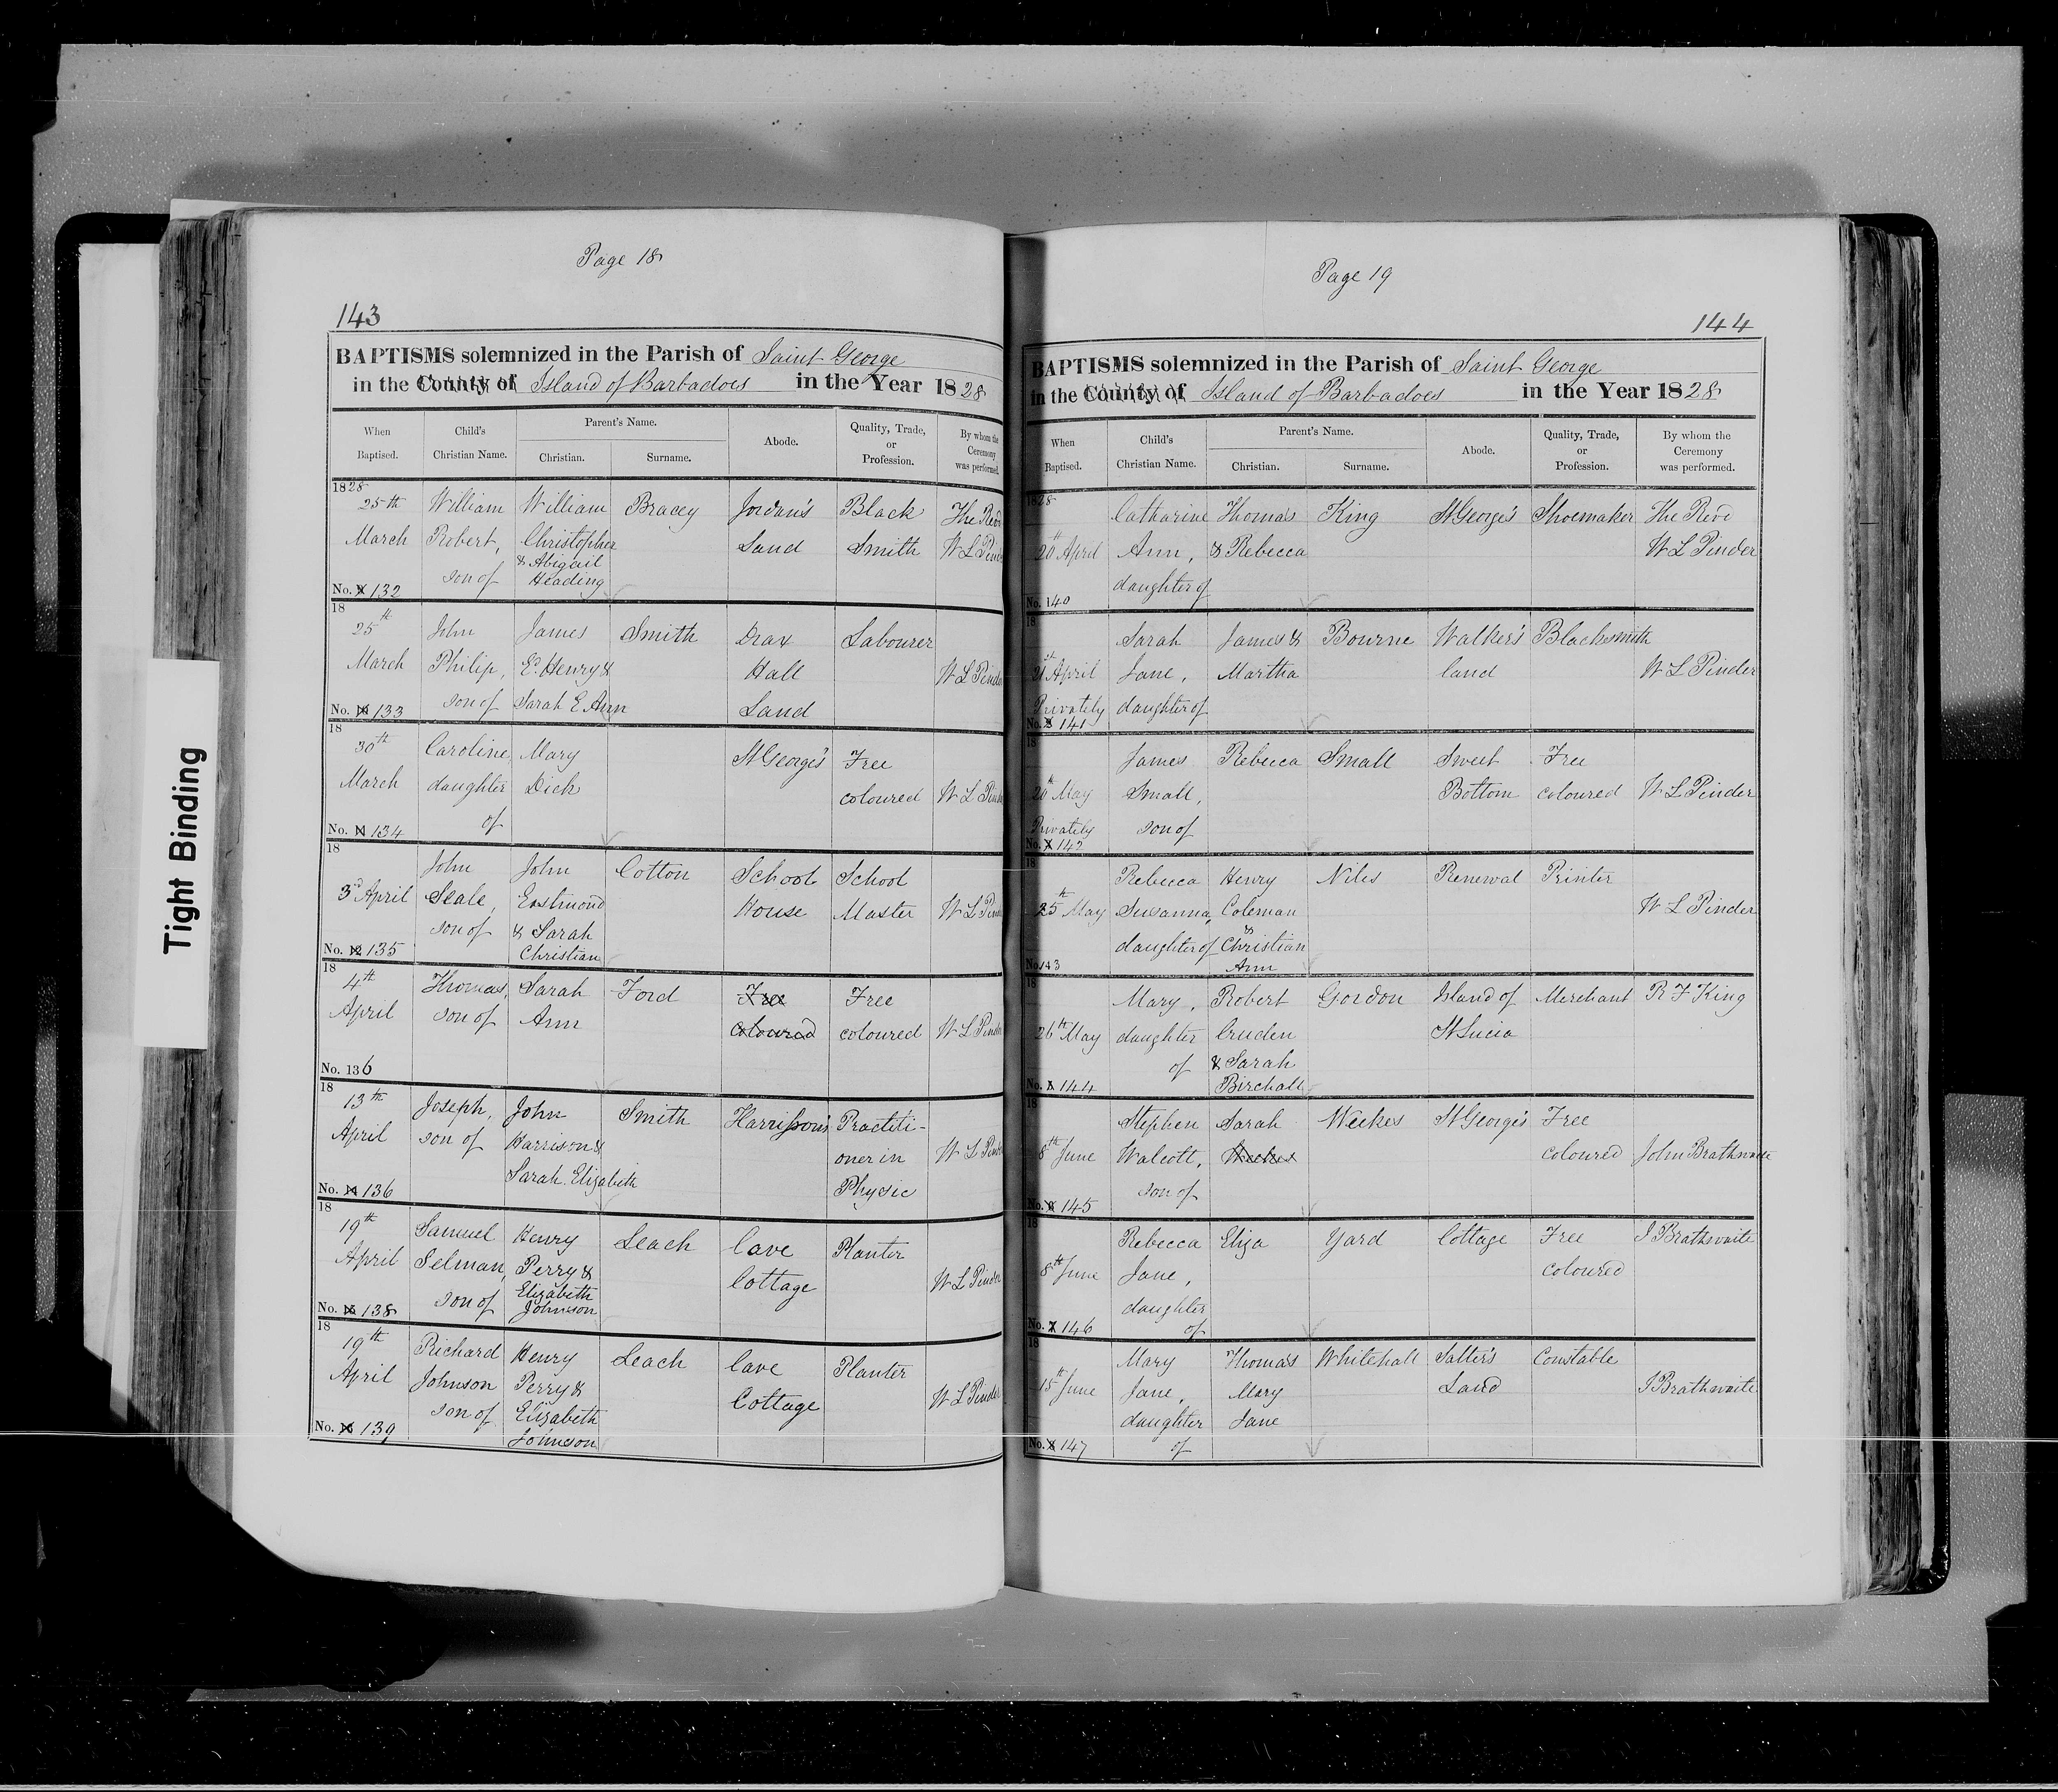 Tight Binding
Page 18
143
BAPTISMS solemnized in the Parish of Saint George
in the County of Island of Barbadoes in the Year 1828
When Baptised.
Child's Christian Name.
Parent's Name.
Christian.
Surname.
Abode.
Quality, Trade, or Profession.
By whom the Ceremony was performed.
1828
25th William William Bracey Jordan's Black The Revd
March Robert, Christopher Land Smith W L Pinder
son of & Abigail
No. 132 Heading
18
25th John James Smith Drax Labourer
March Philip, E. Henry & Hall W L Pinder
No. 133 son of Sarah E Ann Land
18
30th Caroline, Mary St George's Free
March daughter Dick coloured W L Pinder
No. 134 of
18
John John Cotton School School
3rd April Seale, Eastmond House Master W L Pinder
son of & Sarah
No. 135 Christian
18
4th Thomas, Sarah Ford Free Free
April son of Ann coloured coloured W L Pinder
No. 136
18
13th Joseph, John Smith Harrisson's Practiti-
April son of Harrison & oner in W L Pinder
No. 136 Sarah Elizabeth Physic
18
19th Samuel Henry Leach Cave Planter
April Selman, Perry & Cottage W L Pinder
son of Elizabeth
No. 138 Johnson
18
19th Richard Henry Leach Cave Planter
April Johnson Perry & Cottage W L Pinder
son of Elizabeth
No. 139 Johnson
Page 19
144
BAPTISMS solemnized in the Parish of Saint George
in the County of Island of Barbadoes in the Year 1828
When Baptised.
Child's Christian Name.
Parent's Name.
Christian.
Surname.
Abode.
Quality, Trade, or Profession.
By whom the Ceremony was performed.
1828
Catharine Thomas King St George's Shoemaker The Revd
20th April Ann, & Rebecca W L Pinder
No. 140 daughter of
18
Sarah James & Bourne Walker's Blacksmith
21st April Jane, Martha land W L Pinder
Privately daughter of
No. 141
18
James Rebecca Small Sweet Free
20th May Small, Bottom coloured W L Pinder
Privately son of
No. 142
18
Rebecca Henry Niles Renewal Printer
25th May Susanna, Coleman W L Pinder
daughter of & Christian
No. 143 Ann
18
Mary, Robert Gordon Island of Merchant R F King
26th May daughter Cruden St Lucia
of & Sarah
No. 144 Birchall
18
Stephen Sarah Weekes St George's Free
8th June Walcott, Weekes coloured John Brathwaite
No. 145 son of
18
Rebecca Eliza Yard Cottage Free J Brathwaite
8th June Jane, coloured
daughter
No. 146 of
18
Mary Thomas Whitehall Salter's Constable
15th June Jane, Mary Land J Brathwaite
daughter Jane
No. 147 of